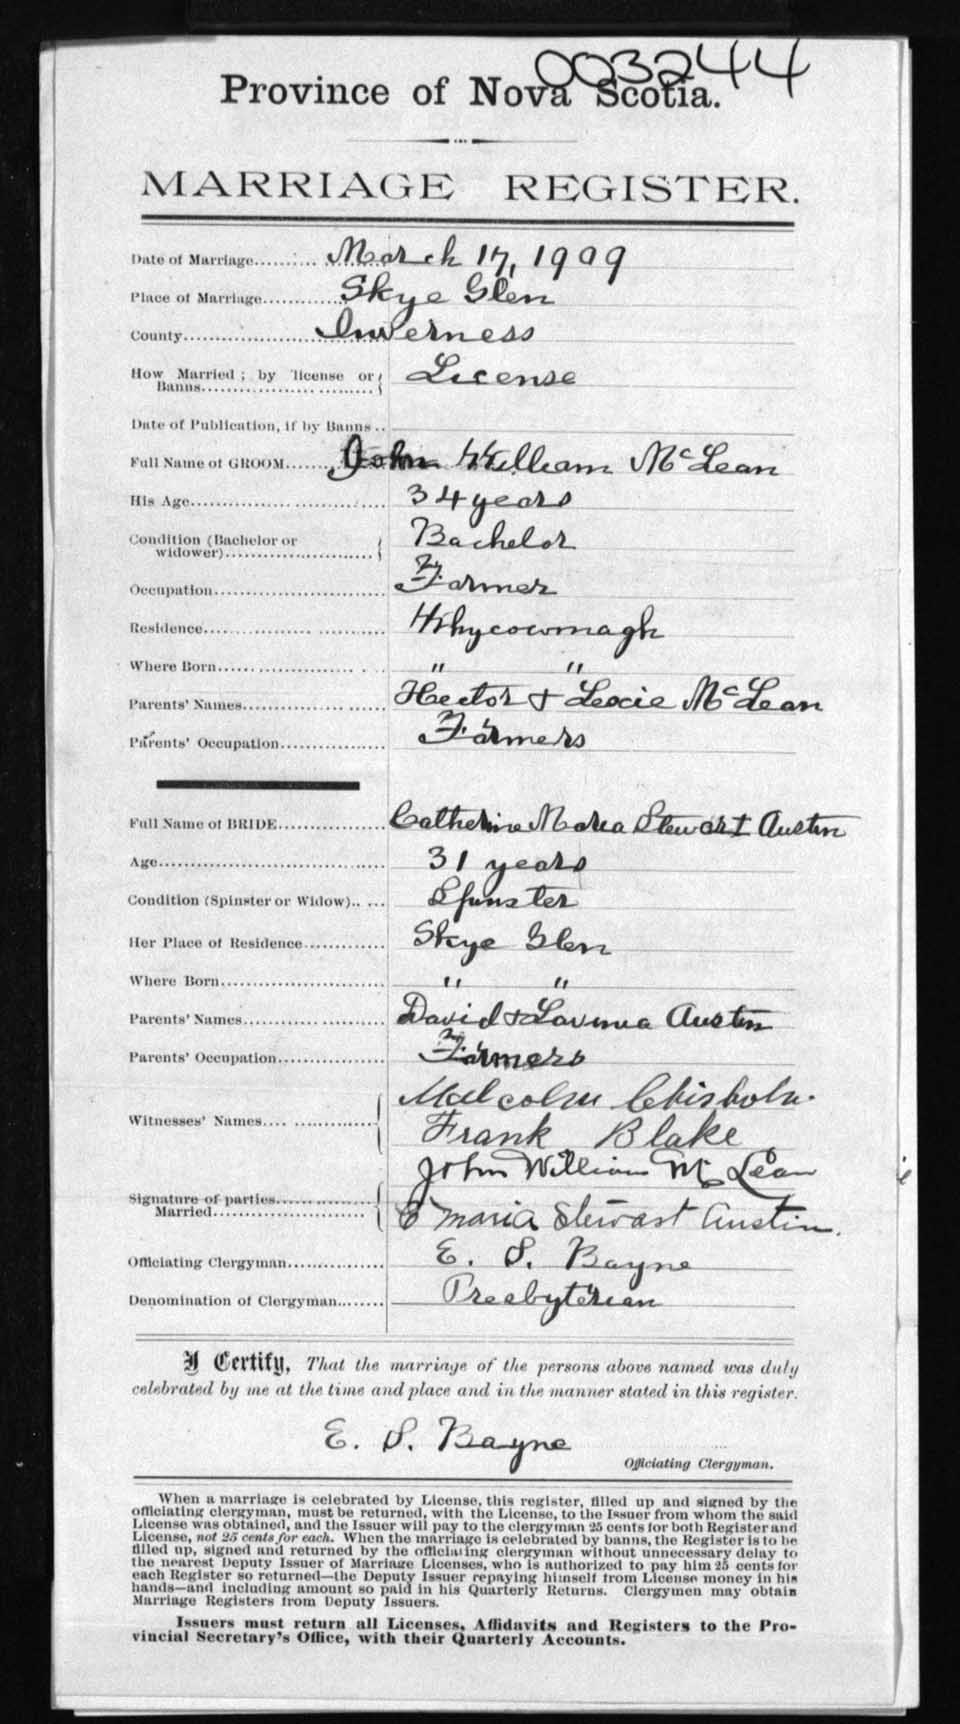 003244
Province of Nova Scotia.
MARRIAGE REGISTER.
Date of Marriage.......... March 17, 1909
Place of Marriage............ Skye Glen
County.......................... Inverness
How Married ; by license or Banns........................ License
Date of Publication, if by Banns ..
Full Name of GROOM....... John William McLean
His Age.............................. 34 years
Condition (Bachelor or widower)........................ Bachelor
Occupation.......................... Farmer
Residence........................... Whycocomagh
Where Born........................ " "
Parents' Names..................... Hector & Lexie McLean
Parents' Occupation............... Farmers
Full Name of BRIDE............... Catherine Maria Stewart Austin
Age................................... 31 years
Condition (Spinster or Widow).. ... Spinster
Her Place of Residence............ Skye Glen
Where Born........................ " "
Parents' Names..................... David & Lavinia Austin
Parents' Occupation............... Farmers
Witnesses' Names.... ............. Malcolm Chisholm.
Frank Blake
Signature of parties Married........................ John William McLean
C Maria Stewart Austin.
Officiating Clergyman............... E. S. Bayne
Denomination of Clergyman........ Presbyterian
I Certify, That the marriage of the persons above named was duly
celebrated by me at the time and place and in the manner stated in this register.
E. S. Bayne
Officiating Clergyman.
When a marriage is celebrated by License, this register, filled up and signed by the
officiating clergyman, must be returned, with the License, to the Issuer from whom the said
License was obtained, and the Issuer will pay to the clergyman 25 cents for both Register and
License, not 25 cents for each. When the marriage is celebrated by banns, the Register is to be
filled up, signed and returned by the officiating clergyman without unnecessary delay to
the nearest Deputy Issuer of Marriage Licenses, who is authorized to pay him 25 cents for
each Register so returned—the Deputy Issuer repaying himself from License money in his
hands—and including amount so paid in his Quarterly Returns. Clergymen may obtain
Marriage Registers from Deputy Issuers.
Issuers must return all Licenses, Affidavits and Registers to the Pro-
vincial Secretary's Office, with their Quarterly Accounts.